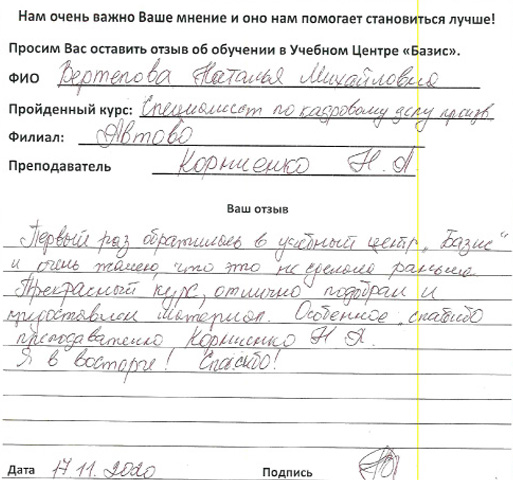 Нам очень важно Ваше мнение и оно нам помогает становиться лучше!
Просим Вас оставить отзыв об обучении в Учебном Центре «Базис».
ФИО Вертепова Наталья Михайловна
Пройденный курс: Специалист по кадровому делу произв
Филиал: Автово
Преподаватель Корниенко Н.А
Ваш отзыв
Первый раз обратилась в учебный центр „Базис“
и очень жалею, что это не сделала раньше.
Прекрасный курс, отлично подобран и
предоставлен материал. Особенное спасибо
преподавателю Корниенко Н А.
Я в восторге! Спасибо!
Дата 17.11.2020 Подпись